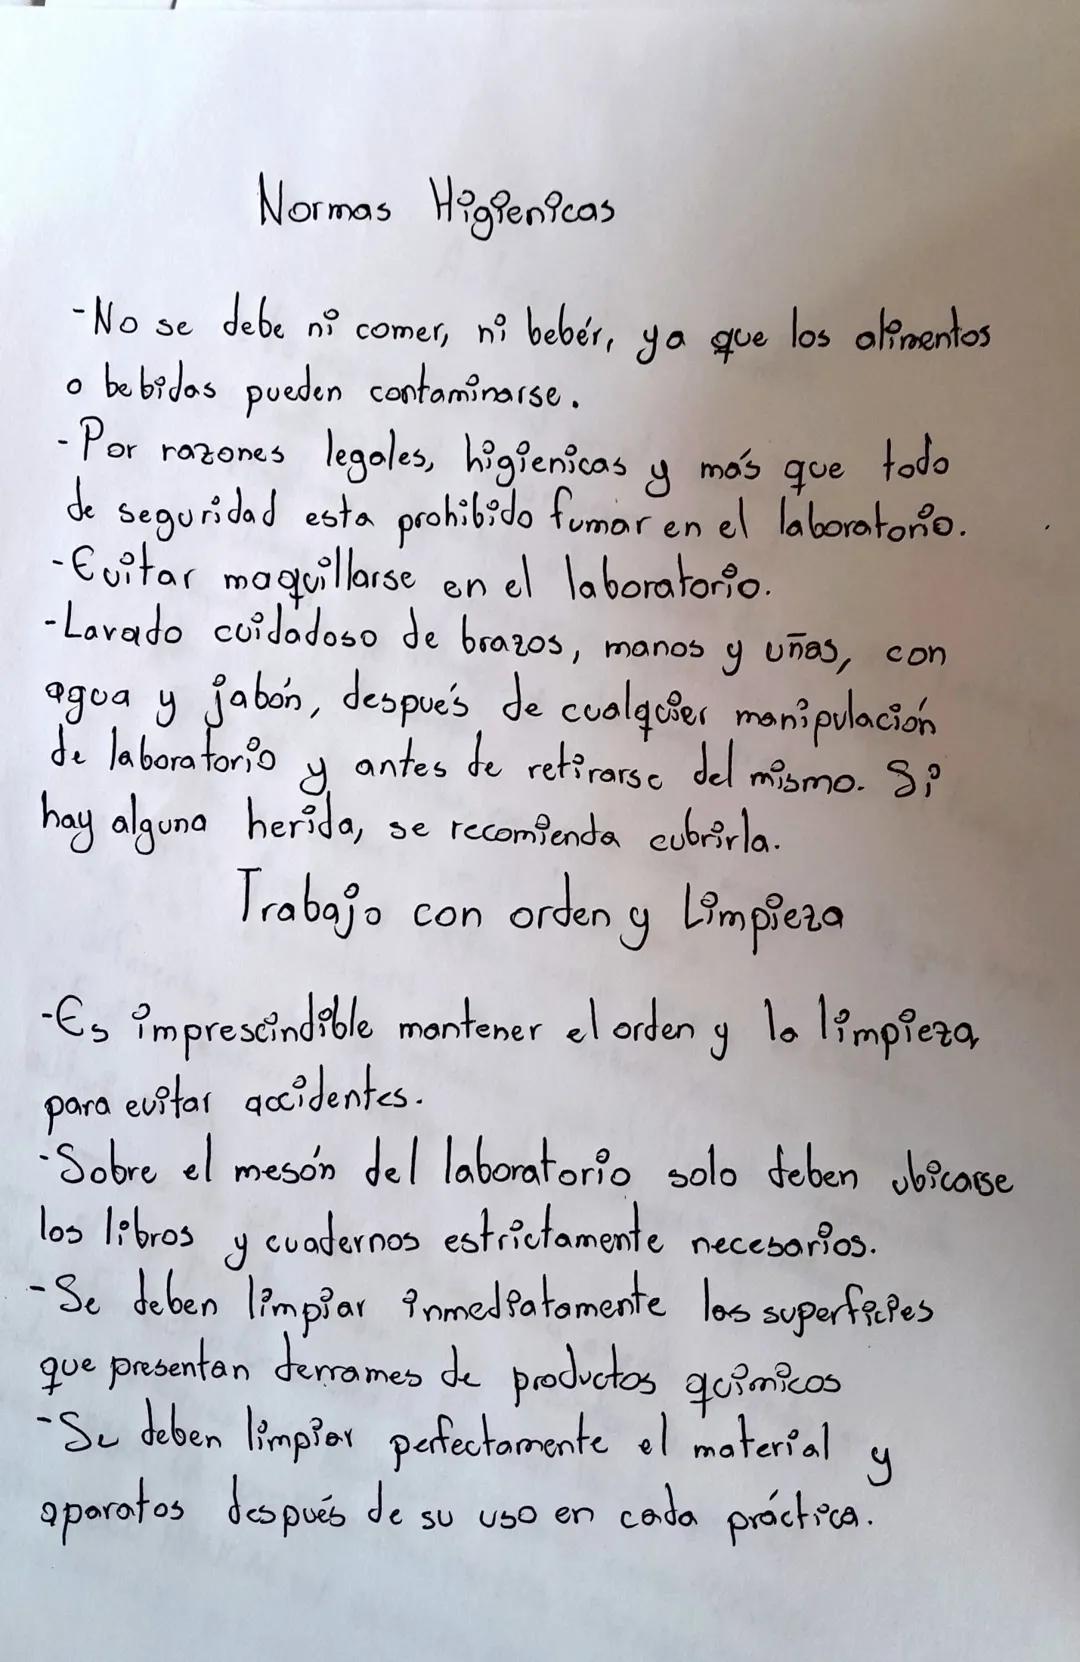 Normas Higienicas
-No se debe ni comer, ni bebér, ya que los alimentos
o bebidas pueden contaminarse.
-Por razones legales, higienicas y más que todo
de seguridad esta prohibido fumar en el laboratorio.
-Evitar maquillarse en el laboratorio.
-Lavado cuidadoso de brazos, manos y uñas, con
agua y jabón, después de cualquier manipulación
de laboratorio y antes de retirarse del mismo. Si
hay alguna herida, se recomienda cubrirla.
Trabajo con orden y Limpieza
-Es imprescindible mantener el orden y la limpieza
para evitar accidentes.
-Sobre el mesón del laboratorio solo deben ubicarse
los libros y cuadernos estrictamente necesarios.
-Se deben limpiar inmediatamente las superficies
que presentan derrames de productos químicos
-Se deben limpiar perfectamente el material y
aparatos después de su uso en cada práctica.